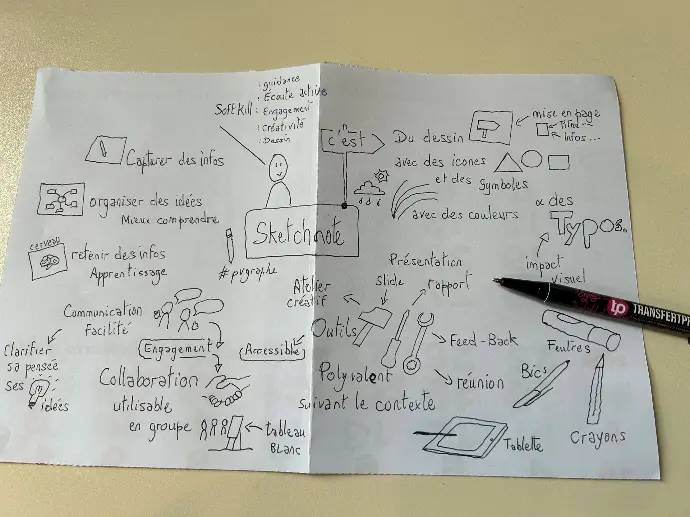 : guidance
: Écoute active
Softkill : Engagement
: créativité
: Dessin
Capturer des infos
organiser des idées
Mieux comprendre
cerveau
retenir des infos
Apprentissage
#pvgraphe
Sketchnote
c'est
Du dessin
mise en page
Titre
infos...
avec des icones
et des Symboles
avec des couleurs
& des
Typos.
impact
visuel
Présentation
Slide
rapport
Atelier
créatif
Outils
Feed-Back
Polyvalent
réunion
suivant le contexte
Communication
facilité
Engagement
Accessible
Clarifier
sa pensée
Ses
idées
Collaboration
utilisable
en groupe
tableau
Blanc
Feutres
Bics
Crayons
Tablette
tp TRANSFERTPR